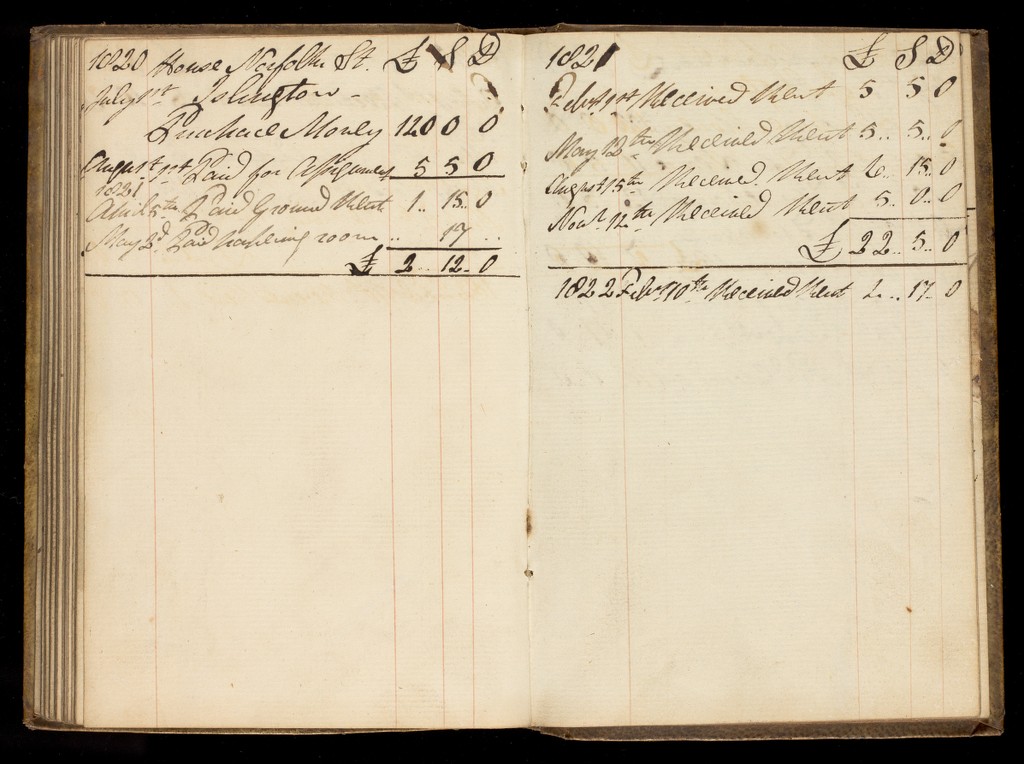 1820 House Norfolk St. £ S D
July 1st Islington
Purchace Money 120 0 0
August 1st Paid for Assignment 5 5 0
1821
April 5th Paid Ground Rent 1.. 15.. 0
May 2d Paid room .. 17 ..
£ 2.. 12.. 0
1821 £ S D
Febry Received Rent 5 5 0
May 12th Received Rent 5.. 5.. 0
August 15th Received Rent 6.. 15.. 0
Novr 12th Received Rent 5.. 0.. 0
£ 22.. 5.. 0
1822 Febry 10th Received Rent 17.. 0